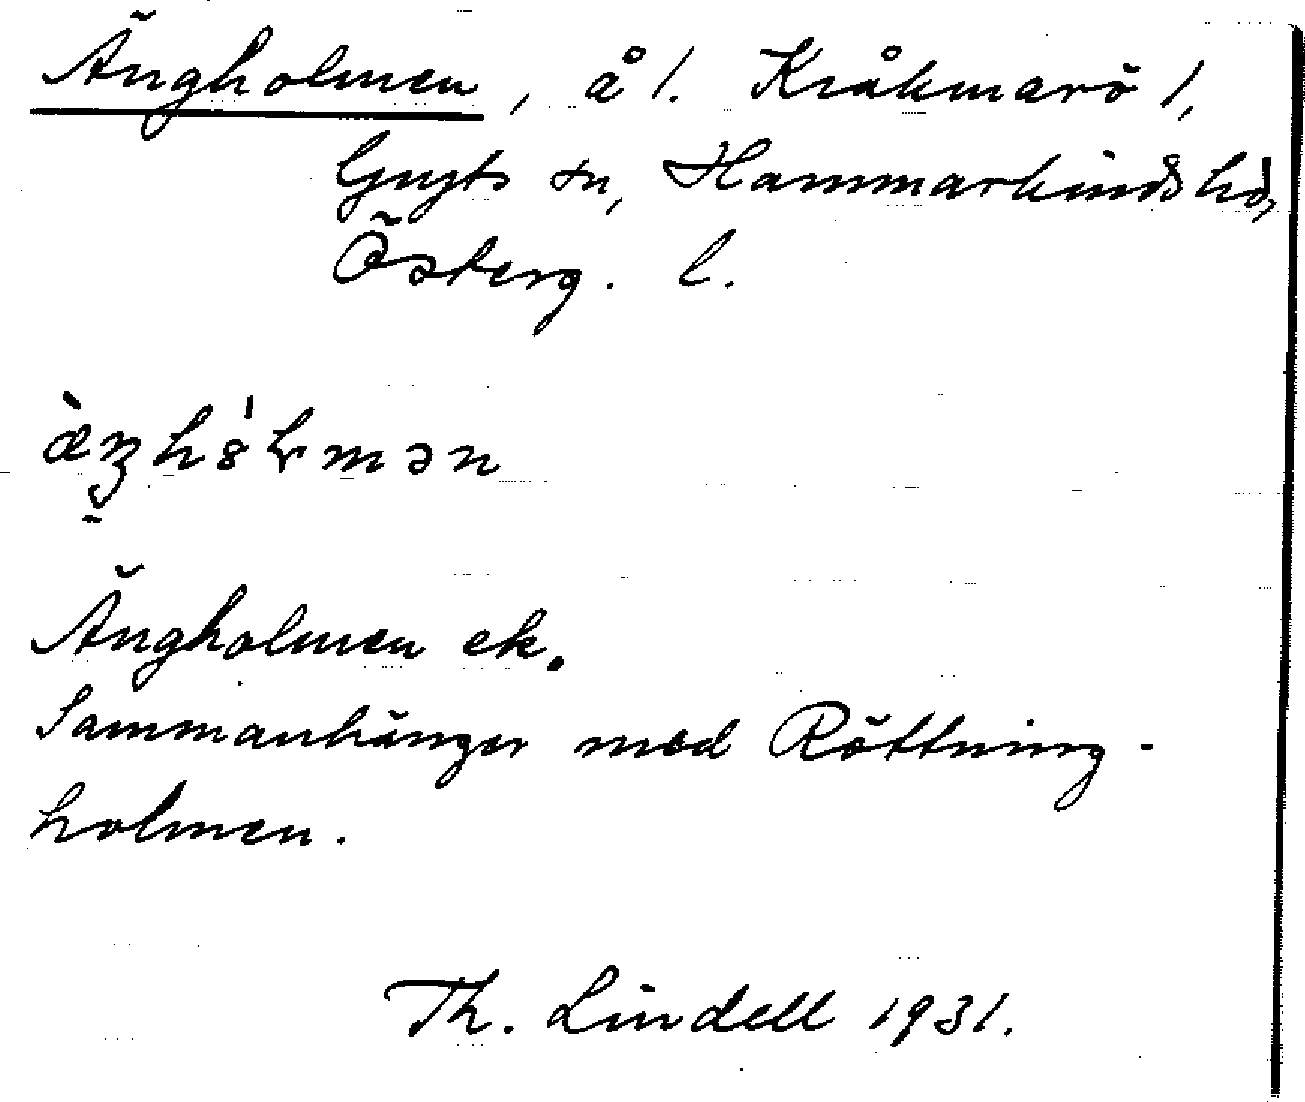 Ängholmen, å 1. Kråkmarö 1,
Gryts sn, Hammarkinds hd,
Österg. l.
Ängholmen ek.
Sammanhänger med Röttning-
holmen.
Th. Lindell 1931.